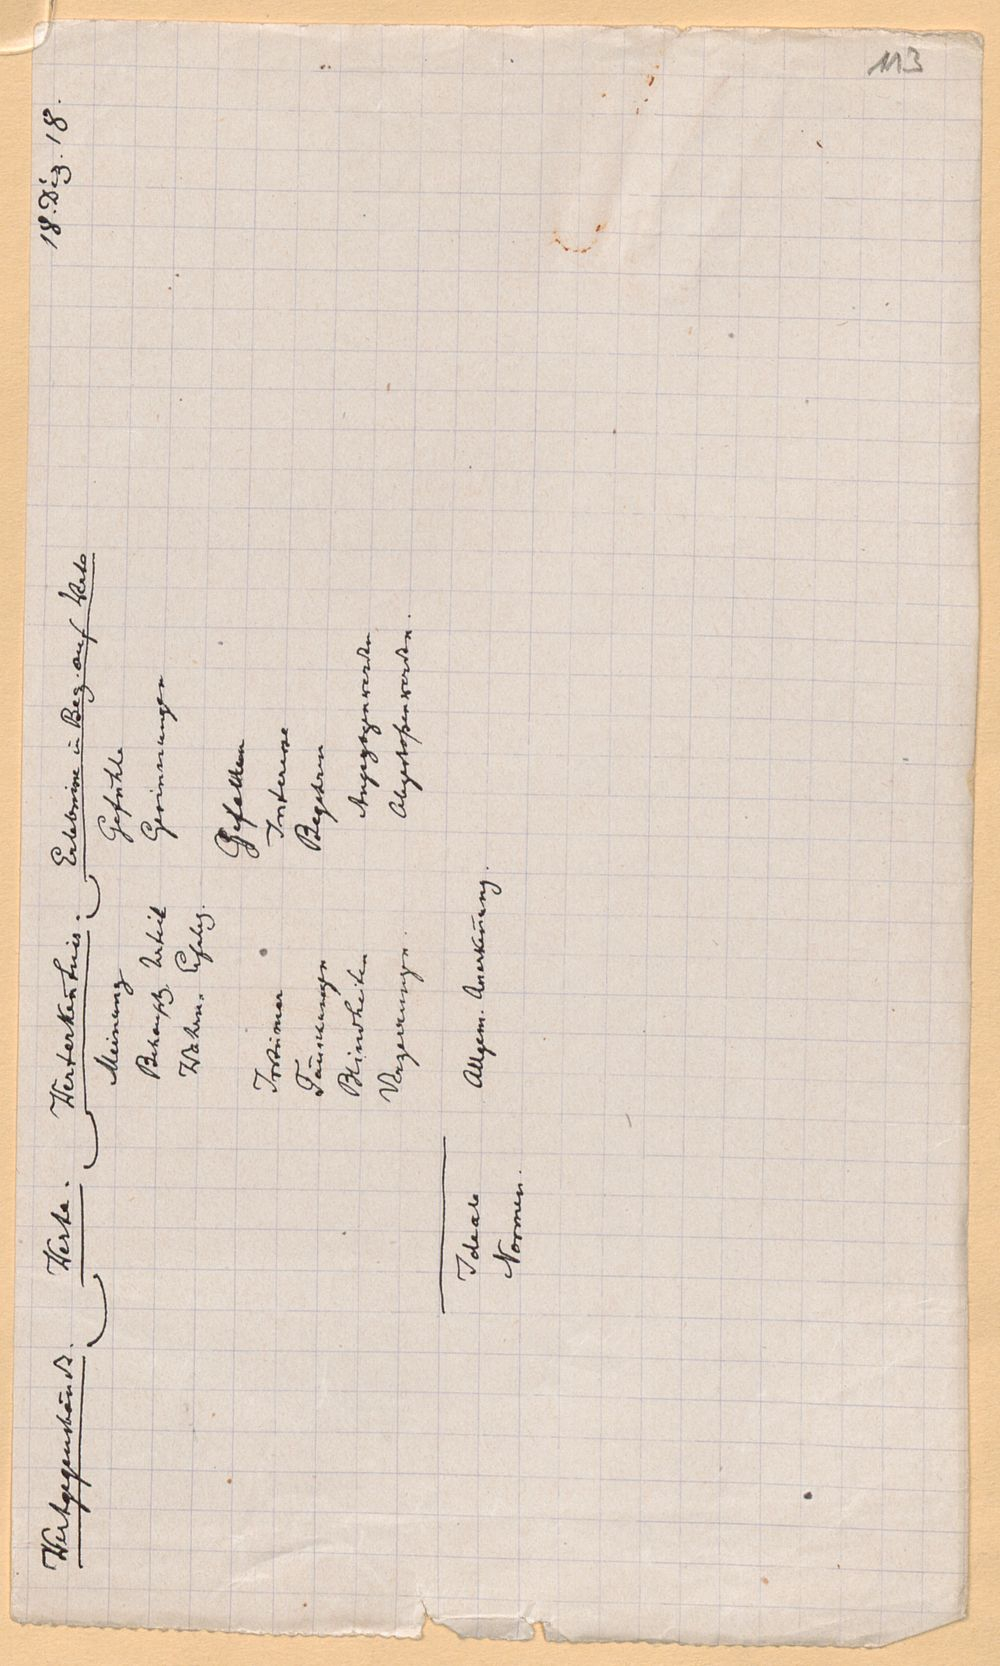 113
18. Dez. 18.
Wertgegenstände.
Werte.
Werterkenntnis.
Erlebnisse in Bez. auf Werte
Meinung
Behauptg. Urteil
Wahrn. Erfahrg.
Irrtümer
Täuschungen
Blindheiten
Verzerrungen.
Gefühle
Gesinnungen
Gefallen
Interesse
Begehren
Angezogenwerden
Abgestoßenwerden.
Ideale
Normen.
Allgem. Anerkennung.